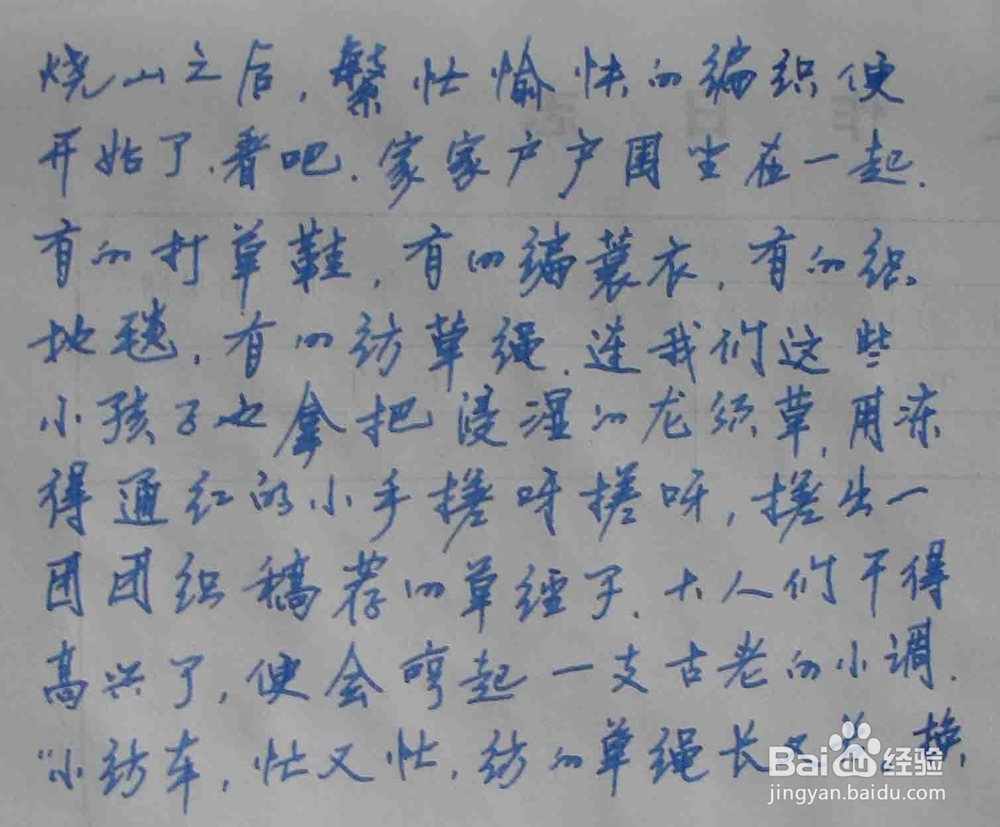 烧山之后，繁忙愉快的编织便
开始了.看吧.家家户户围坐在一起.
有的打草鞋，有的编蓑衣，有的织
地毯，有的纺草绳.连我们这些
小孩子也拿把浸湿的龙须草，用冻
得通红的小手搓呀搓呀，搓出一
团团织稿荐的草经子.大人们干得
高兴了，便会哼起一支古老的小调.
“小纺车，忙又忙，纺的草绳长又长，
Baidu经验
jingyan.baidu.com